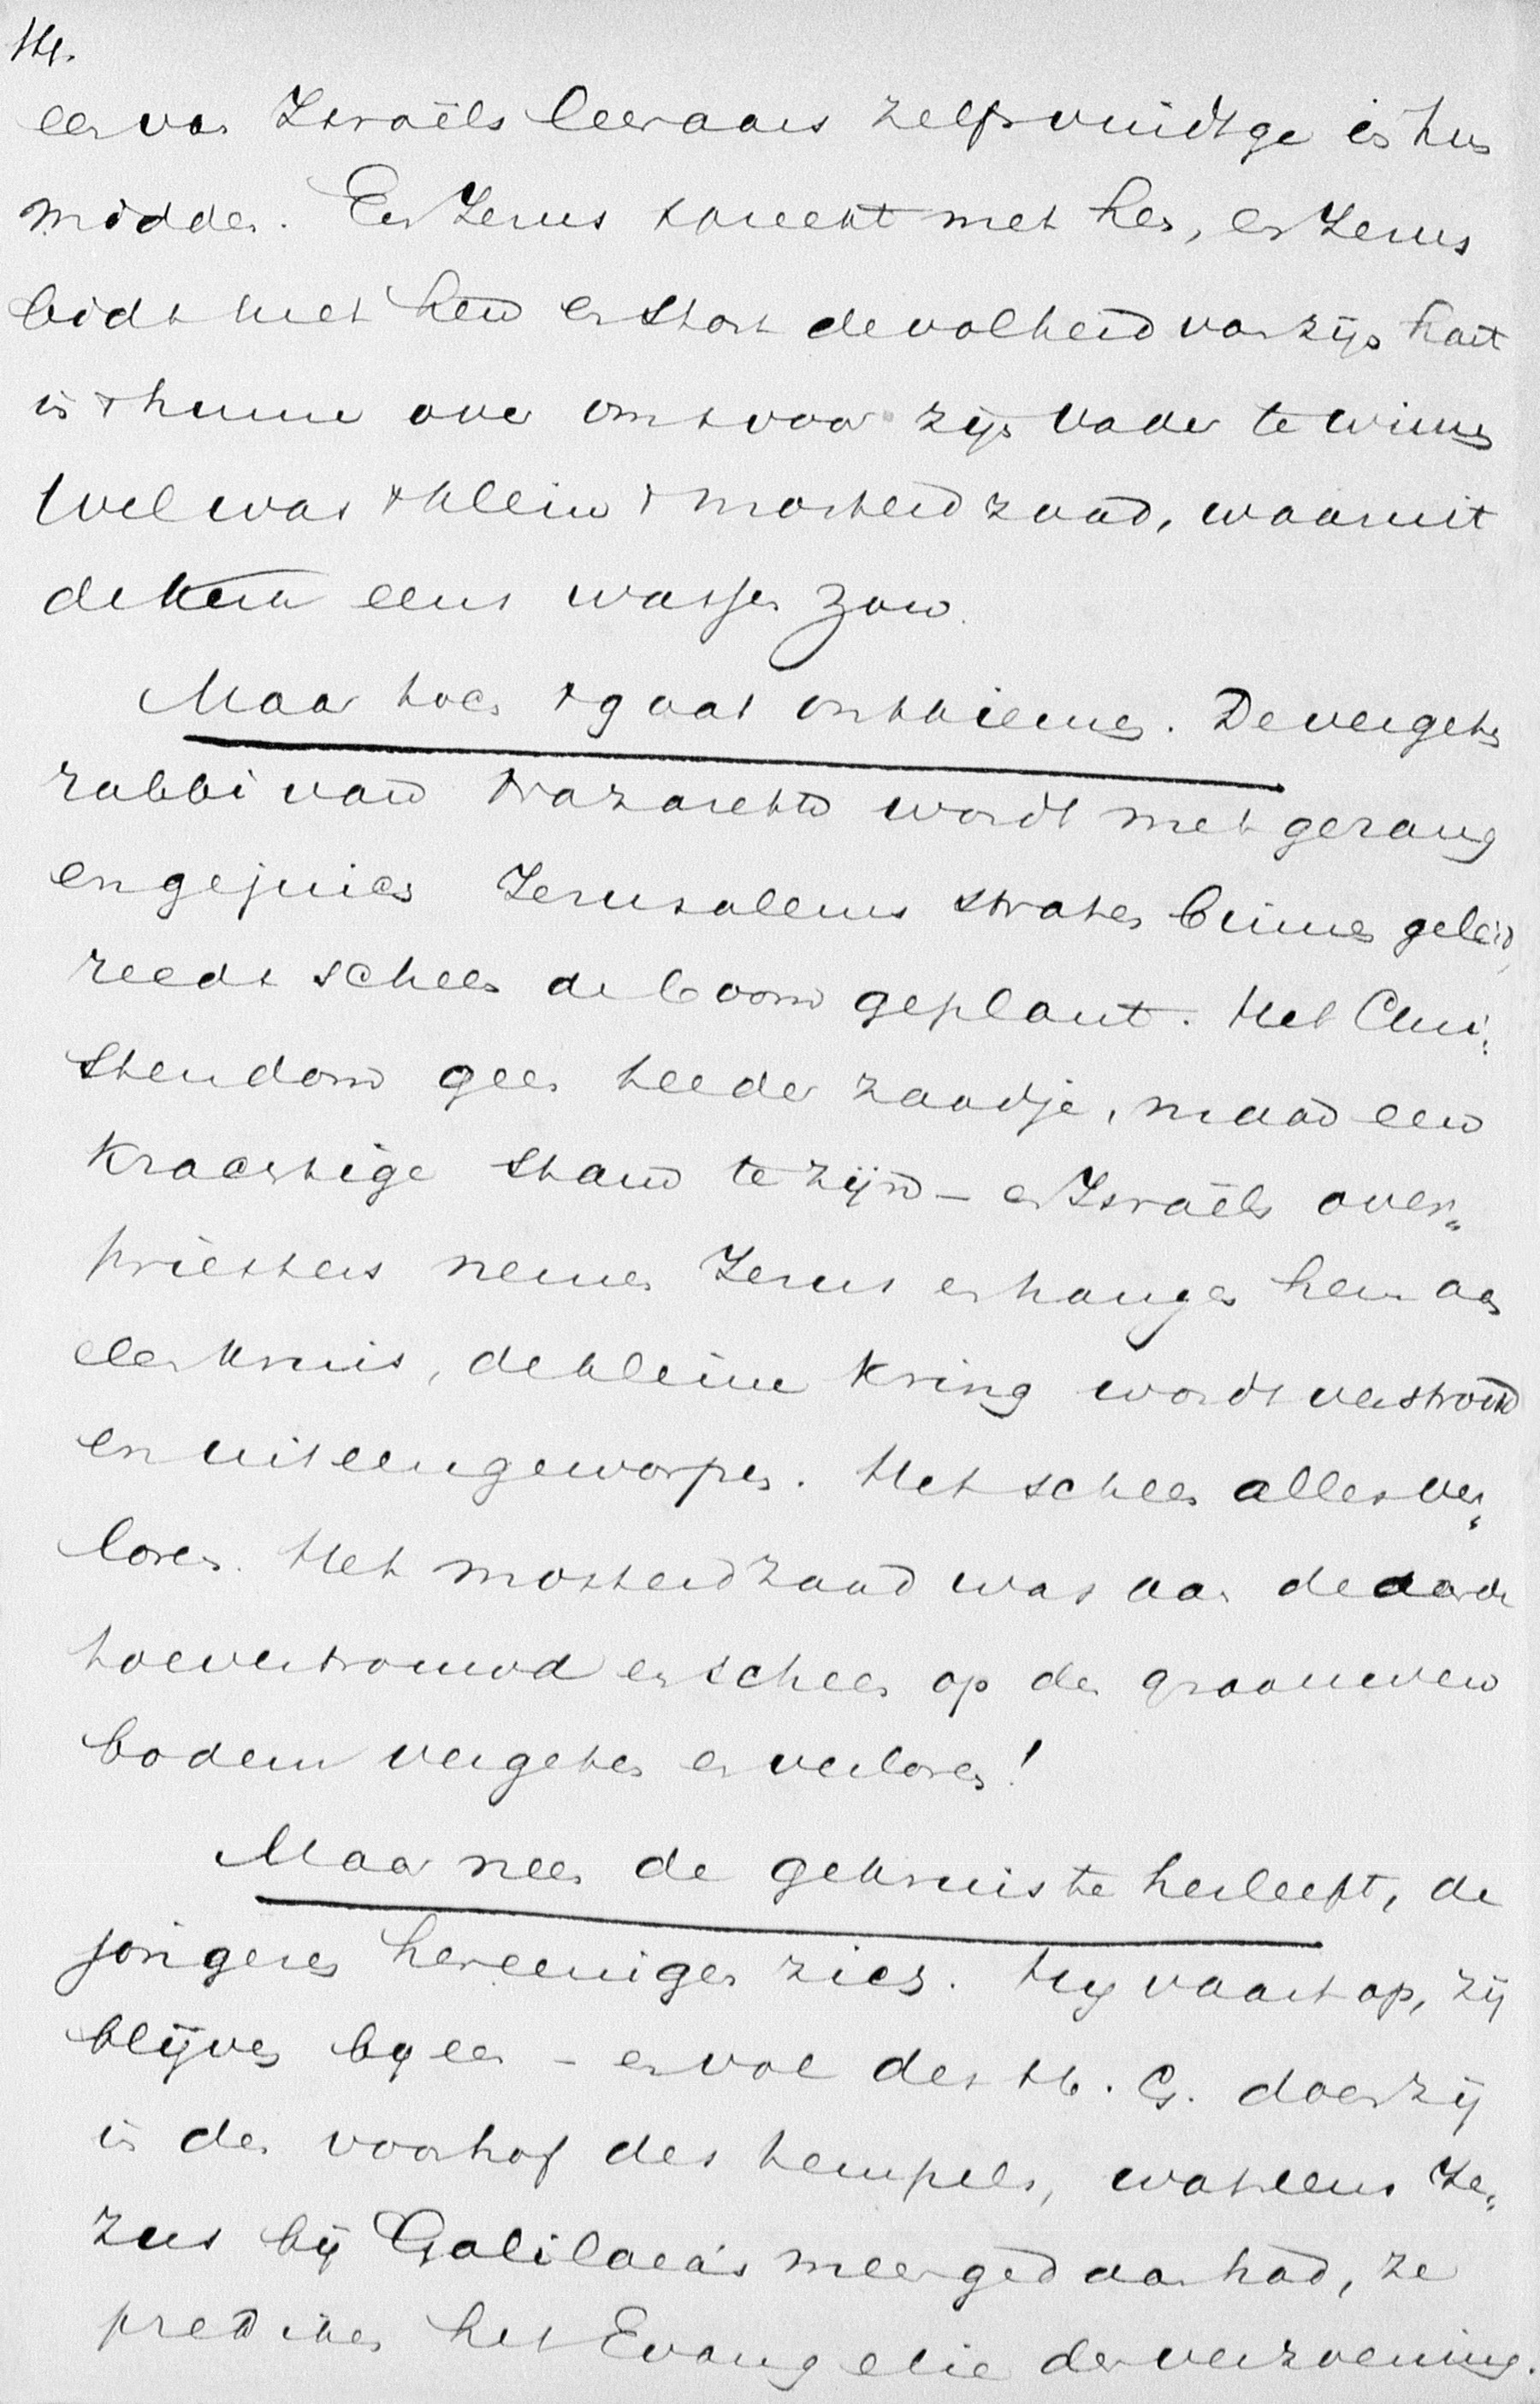 14.
een van Israëls leeraars zelfs vindt ge in hun
midden. En Jezus spreekt met hen, en Jezus
bidt met hen en stort de volheid van zijn hart
in 't hunne over om ze voor zijn Vader te winnen
Wel was 't klein 't mosterdzaad, waaruit
de Kerk eens wassen zou.
Maar toch 't gaat ontkiemen. De vergeten
rabbi van Nazareth wordt met gezang
en gejuich Jerusalems straten binnen geleid,
reeds scheen de boom geplant. Het Chri:
stendom geen teeder zaadje, maar een
krachtige stam te zijn – en Israëls over„
priesters nemen Jezus en hangen hem aan
een kruis, de kleine kring wordt verstrooid
en uiteengeworpen. Het scheen alles ver„
loren. Het mosterdzaad was aan de aarde
toevertrouwd en scheen op den graauwen
bodem vergeten en verloren!
Maar neen de gekruiste herleeft, de
jongeren hereenigen zich. Hij vaart op, zij
blijven bijeen – en vol des H. G. doen zij
in den voorhof des tempels, wat eens Je„
zus bij Galilaea's meer gedaan had, ze
prediken het Evangelie der verzoening.